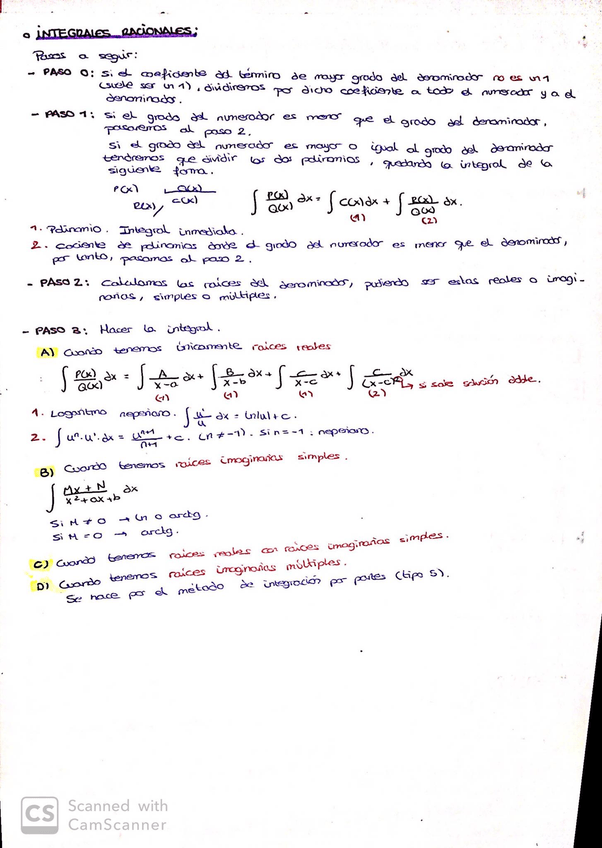 o INTEGRALES RACIONALES:
Pasos a seguir:
- PASO 0: Si el coeficiente del término de mayor grado del denominador no es un 1
(suele ser un 1), dividiremos por dicho coeficiente a todo el numerador y a el
denominador.
- PASO 1: Si el grado del numerador es menor que el grado del denominador,
pasaremos al paso 2.
Si el grado del numerador es mayor o igual al grado del denominador
tendremos que dividir los dos polinomios, quedando la integral de la
siguiente forma.
P(x) | Q(x)
R(x) / C(x)
∫ P(x)/Q(x) dx = ∫ C(x) dx + ∫ R(x)/Q(x) dx.
(1) (2)
1. Polinomio. Integral inmediata.
2. Cociente de polinomios donde el grado del numerador es menor que el denominador,
por tanto, pasamos al paso 2.
- PASO 2: Calculamos las raíces del denominador, pudiendo ser estas reales o imagi-
narias, simples o múltiples.
- PASO 3: Hacer la integral.
A) Cuando tenemos únicamente raíces reales
∫ P(x)/Q(x) dx = ∫ A/x-a dx + ∫ B/x-b dx + ∫ C/x-c dx + ∫ C/(x-c)² dx
(1) (1) (1) (2) ↳ si sale solución doble.
1. Logaritmo neperiano. ∫ u'/u dx = ln|u| + c.
2. ∫ uⁿ · u' · dx = uⁿ⁺¹/n+1 + c. (n ≠ -1). Si n = -1: neperiano.
B) Cuando tenemos raíces imaginarias simples.
∫ Mx + N/x² + ax + b dx
Si M ≠ 0 → ln o arctg.
Si M = 0 → arctg.
C) Cuando tenemos raíces reales con raíces imaginarias simples.
D) Cuando tenemos raíces imaginarias múltiples.
Se hace por el método de integración por partes (tipo 5).
CS Scanned with
CamScanner